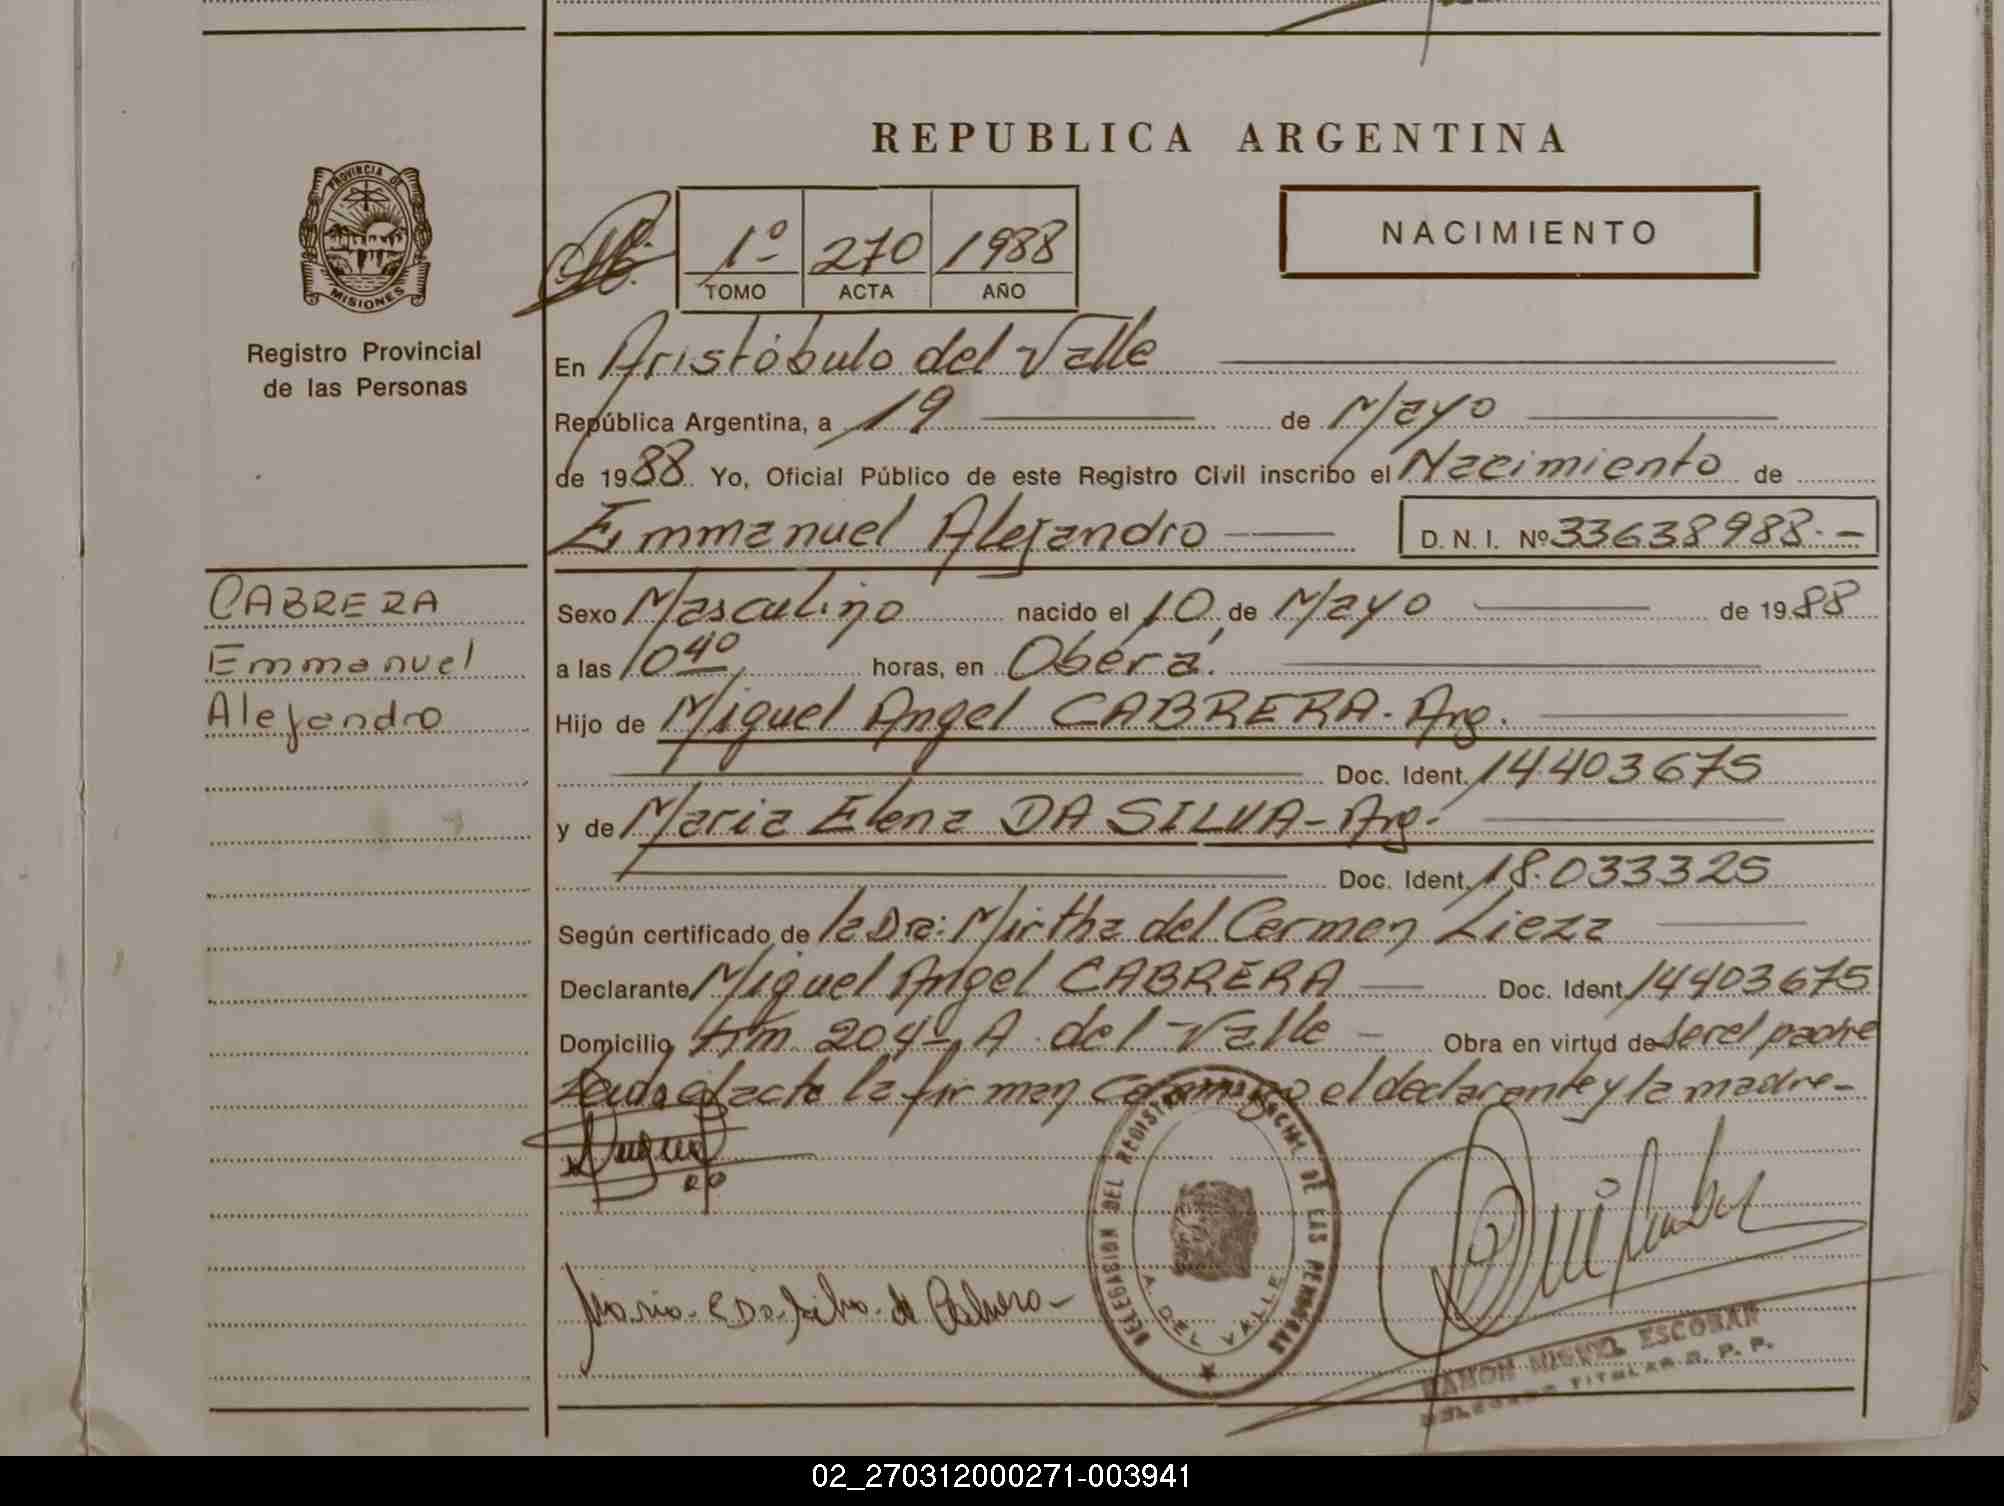 REPUBLICA ARGENTINA
PROVINCIA DE
MISIONES
Registro Provincial
de las Personas
1º 270 1988
TOMO ACTA AÑO
NACIMIENTO
En Aristóbulo del Valle
República Argentina, a 19 de Mayo
de 1988 Yo, Oficial Público de este Registro Civil inscribo el Nacimiento de
Emmanuel Alejandro D. N. I. Nº 33638988.-
CABRERA
Emmanuel
Alejandro
Sexo Masculino nacido el 10 de Mayo de 1988
a las 10 40 horas, en Oberá.
Hijo de Miguel Angel CABRERA. Arg.
Doc. Ident. 14.403675
y de Maria Elena DA SILVA - Arg.
Doc. Ident. 18.033325
Según certificado de la Dra: Mirtha del Carmen Lieza
Declarante Miguel Angel CABRERA Doc. Ident. 14403675
Domicilio 204 - A. del Valle - Obra en virtud de ser el padre
el acta la firman conmigo el declarante y la madre-
DELEGASION DEL REGISTRO PROVINCIAL DE LAS PERSONAS
A. DEL VALLE
Maria - E Da Silva - de Cabrera -
RAMON MIGUEL ESCOBAR
DELEGADO TITULAR R. P. P.
02_270312000271-003941